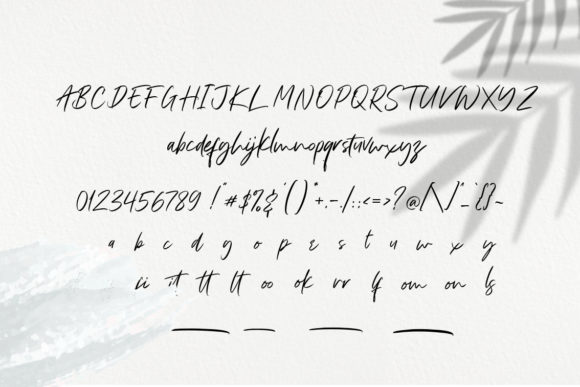 ABCDEFGHIJKLMNOPQRSTUVWXYZ
abcdefghijklmnopqrstuvwxyz
0123456789 !"#$%&'()*+,-./:;<=>?@[\]^_`{|}~
a b c d g o p z s t u w x y
ii it tt lt oo ok rr lf om on ls